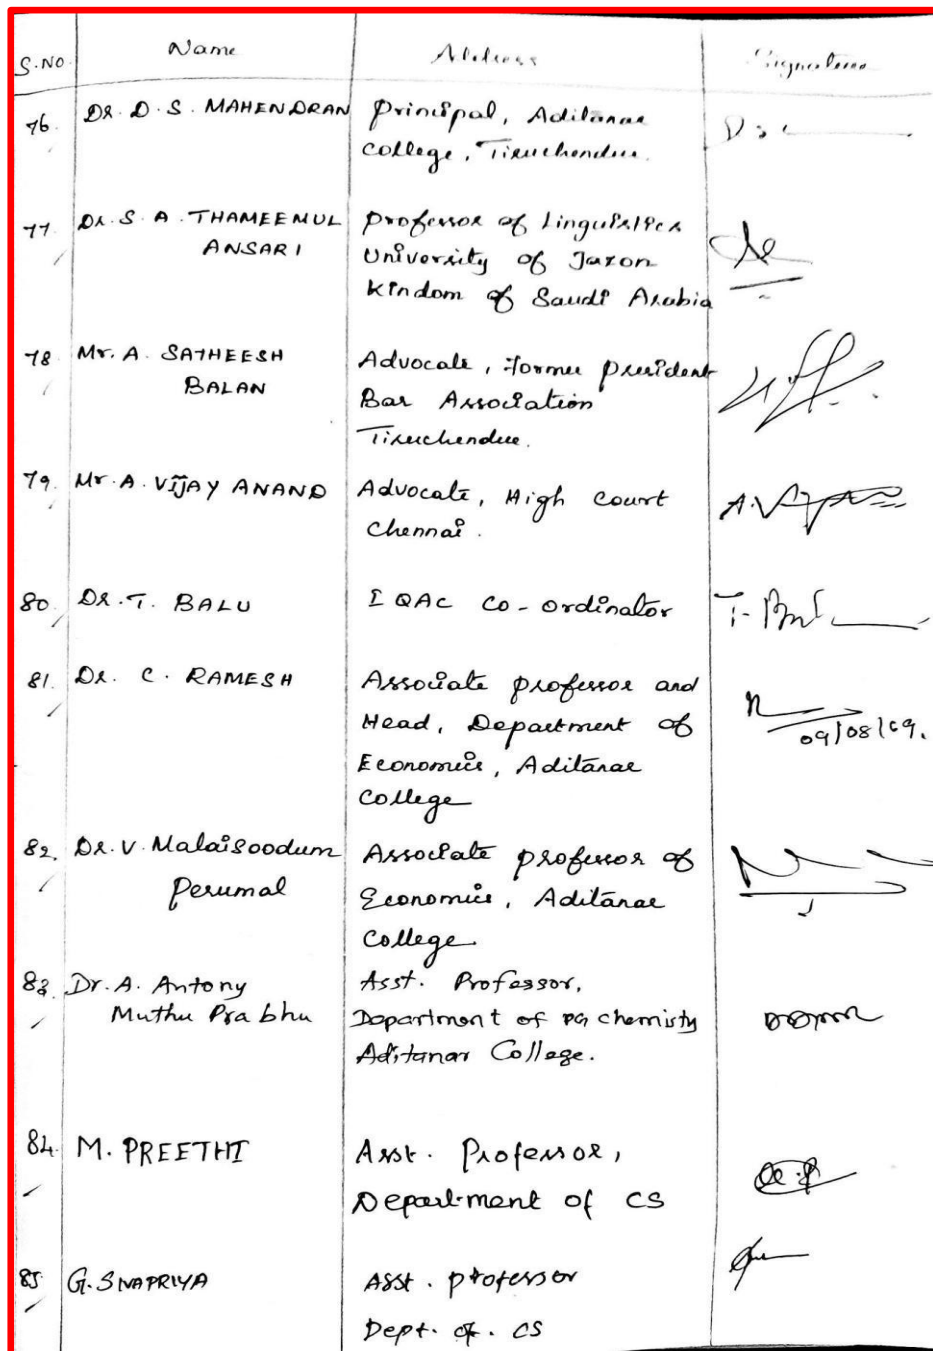 S.NO Name Address Signature
76. Dr. D. S. MAHENDRAN Principal, Aditanar
College, Tiruchendur.
77. Dr. S. A. THAMEEMUL Professor of Linguistics
ANSARI University of Jazon
Kindom of Saudi Arabia
78. Mr. A. SATHEESH Advocate, Former President
BALAN Bar Association
Tiruchendur.
79. Mr. A. VIJAY ANAND Advocate, High Court
Chennai.
80. Dr. T. BALU IQAC Co-ordinator
81. Dr. C. RAMESH Associate professor and
Head, Department of 09/08/69.
Economics, Aditanar
College
82. Dr. V. Malaisoodum Associate professor of
Perumal Economics, Aditanar
College.
83. Dr. A. Antony Asst. Professor,
Muthu Prabhu Department of PG chemisty
Aditanar College.
84. M. PREETHI Asst. Professor,
Department of CS
85. G. SIVAPRIYA Asst. professor
Dept. of. CS